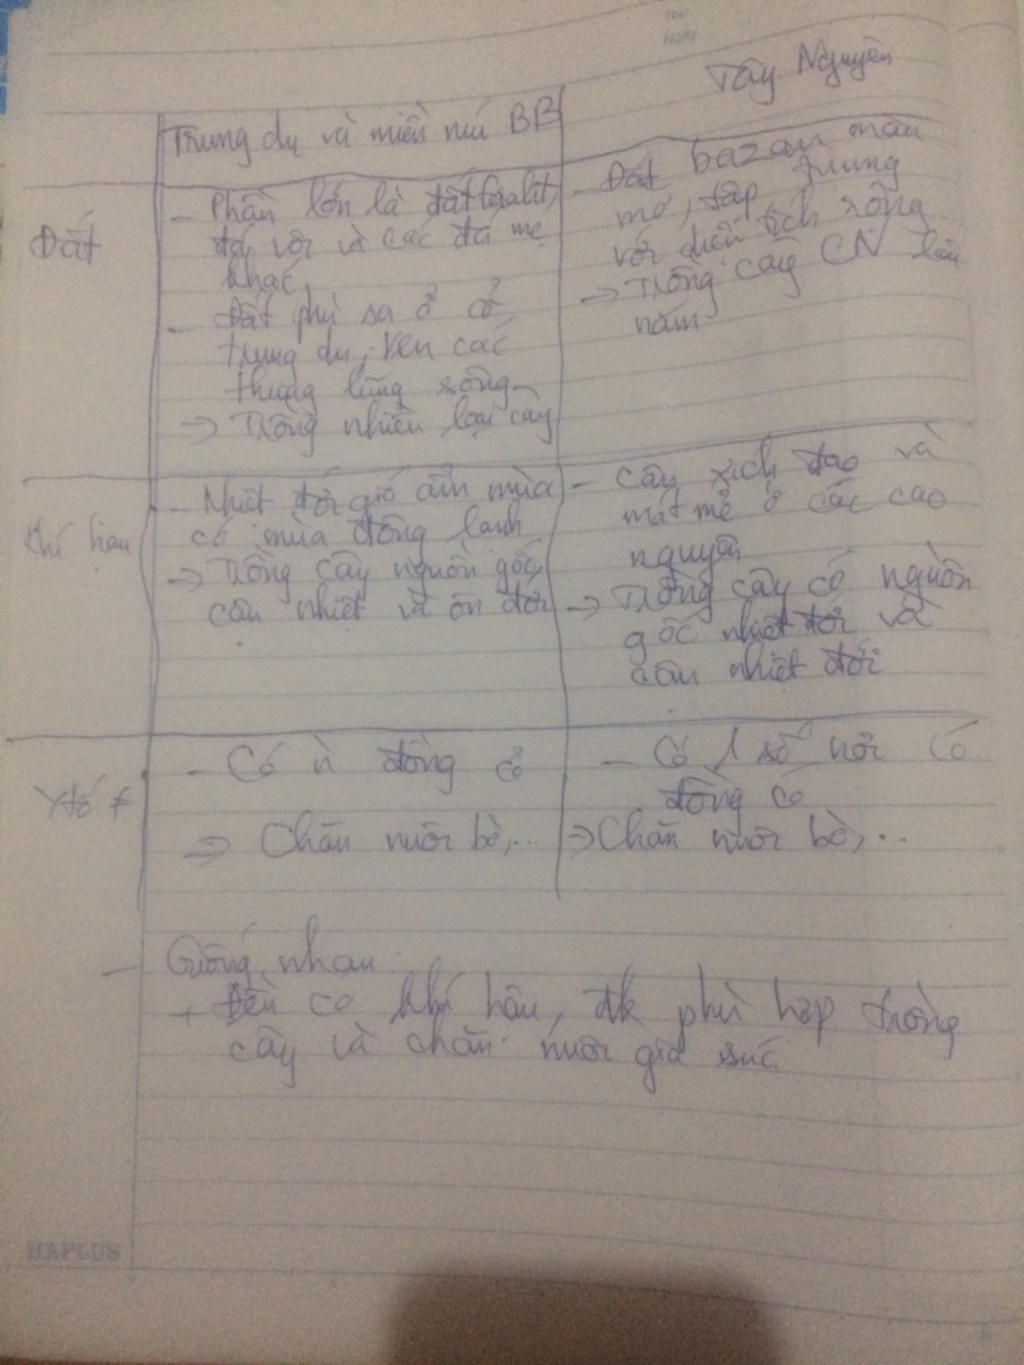 Thứ
Ngày
Tây Nguyên
Trung du và miền núi BB
Đất
- Phần lớn là đất feralit,
đá vôi và các đá mẹ
khác
- Đất phù sa ở cổ
trung du, ven các
thung lũng sông
=> Trồng nhiều loại cây
- Đất bazan màu
mỡ, tập trung
với diện tích rộng
=> Trồng cây CN lâu
năm
Khí hậu
- Nhiệt đới gió ẩm mùa
có mùa đông lạnh
=> Trồng cây nguồn gốc
cận nhiệt và ôn đới
- Cận xích đạo và
mát mẻ ở các cao
nguyên
=> Trồng cây có nguồn
gốc nhiệt đới và
cận nhiệt đới
Ytố ≠
- Có n đồng cỏ
=> Chăn nuôi bò,...
- Có 1 số nơi có
đồng cỏ
=> Chăn nuôi bò,...
- Giống nhau
+ Đều có khí hậu, đk phù hợp trồng
cây và chăn nuôi gia súc
HAPLUS